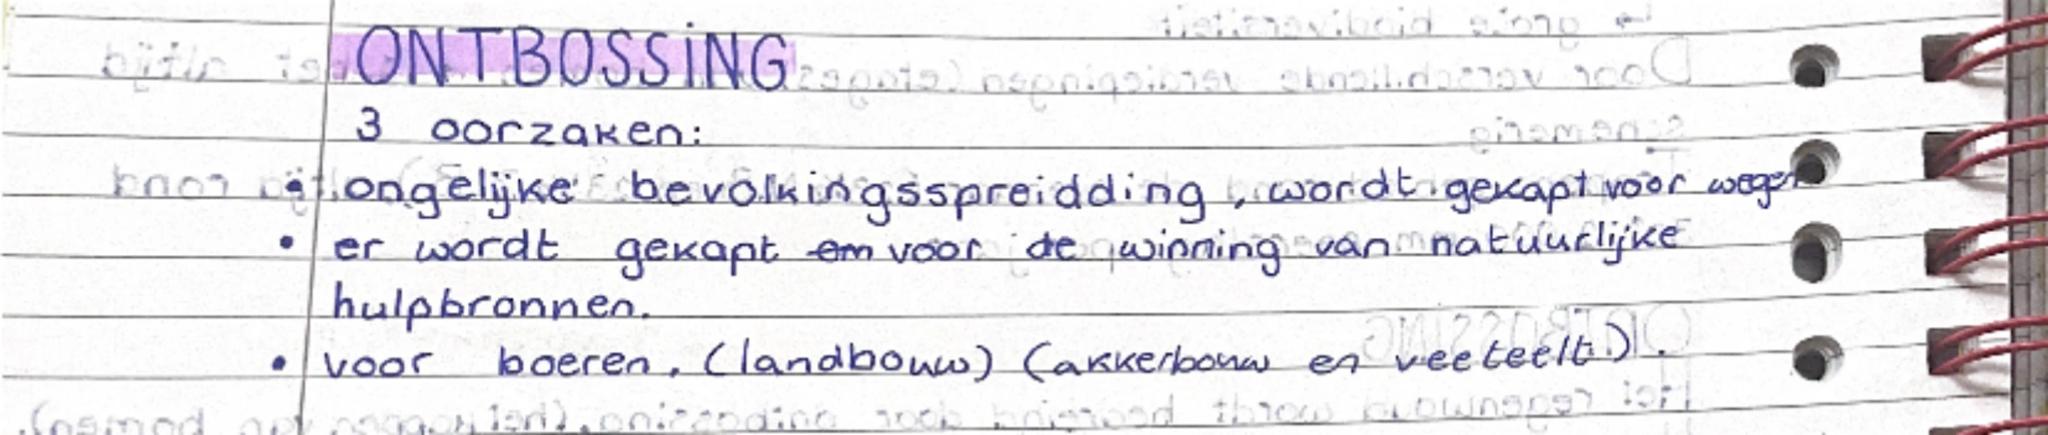 ONTBOSSING
3 oorzaken:
• ongelijke bevolkingsspreidding, wordt gekapt voor wegen
• er wordt gekapt om voor de winning van natuurlijke
hulpbronnen.
• voor boeren. (landbouw) (akkerbouw en veeteelt).